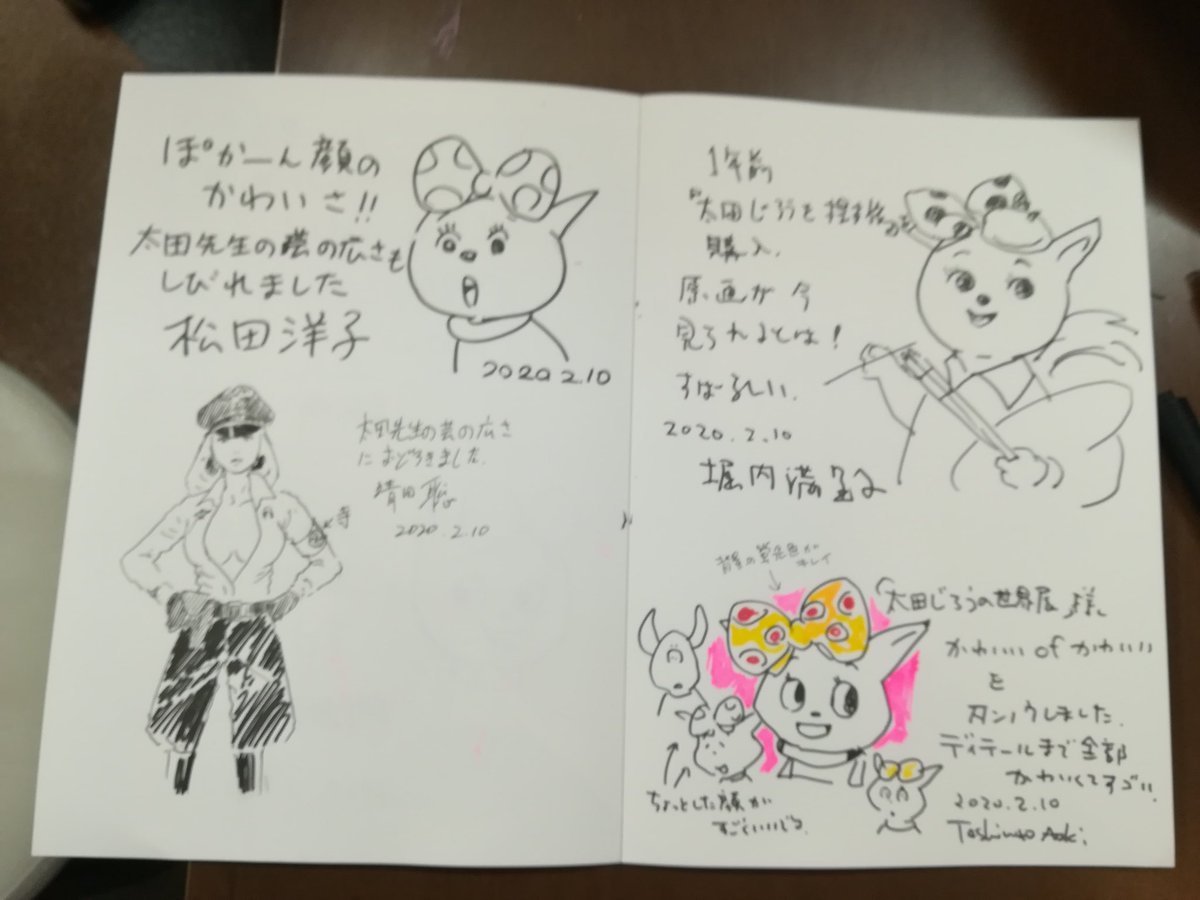 ぽかーん顔の
かわいさ!!
太田先生の芸の広さも
しびれました
松田洋子
2020 2.10
太田先生の芸の広さ
におどろきました.
2020.2.10
1年前
太田じろうを
購入.
原画が今
見られるとは!
すばらしい.
2020.2.10
堀内満里子
背景の蛍光色が
キレイ
「太田じろうの世界展」様、
かわいい of かわいい
を
カンノウしました.
ディテールまで全部
かわいくてすごい.
2020.2.10
Aoki
ちょっとした顔が
すごくいいじる.